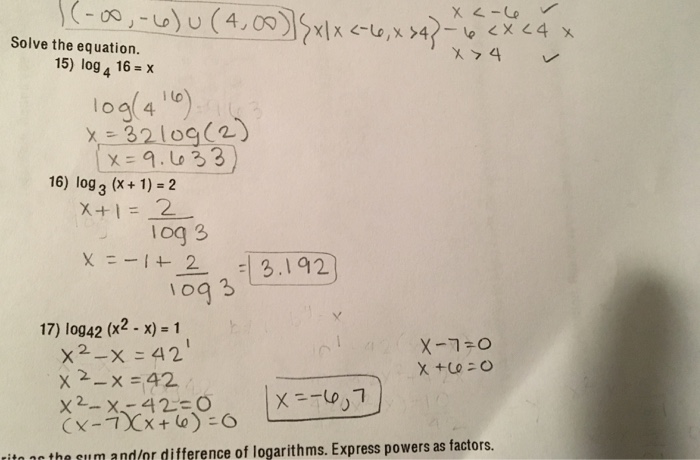 (-∞, -6) ∪ (4, ∞) {x|x<-6, x>4}
x < -6 ✓
-6 < x < 4 x
x > 4 ✓
Solve the equation.
15) log 4 16 = x
log(4^16)
x = 32 log(2)
x = 9.633
16) log 3 (x + 1) = 2
x + 1 = 2 / log 3
x = -1 + 2 / log 3 = 3.192
17) log42 (x² - x) = 1
x² - x = 42¹
x² - x = 42
x² - x - 42 = 0
(x - 7)(x + 6) = 0
x = -6, 7
x - 7 = 0
x + 6 = 0
the sum and/or difference of logarithms. Express powers as factors.